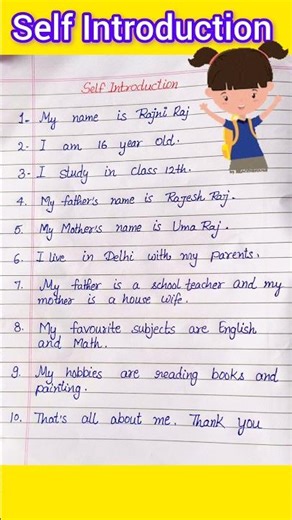 Self Introduction
Self Introduction
1- My name is Rajni Raj
2- I am 16 year old.
3- I study in class 12th.
4. My father's name is Rajesh Raj.
5. My Mother's name is Uma Raj.
6. I live in Delhi with my parents.
7. My father is a school teacher and my
mother is a house wife.
8. My favourite subjects are English
and Math.
9. My hobbies are reading books and
painting.
10. That's all about me. Thank you